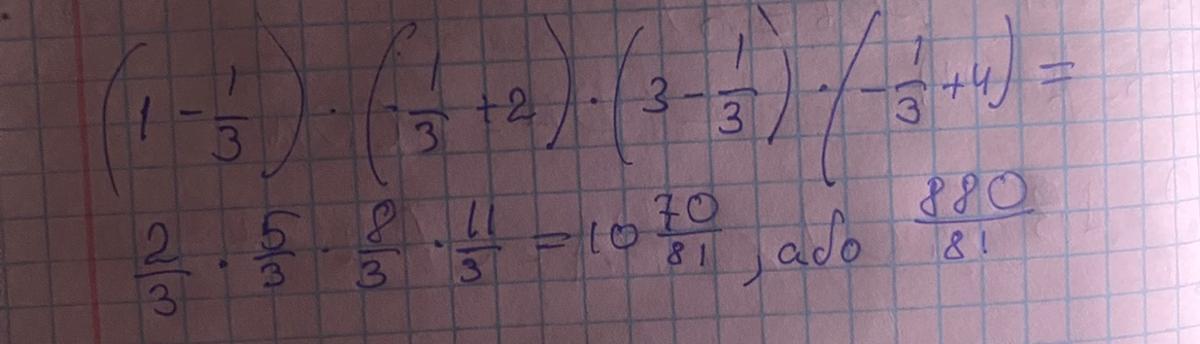 (1 - 1/3) · (-1/3 + 2) · (3 - 1/3) · (-1/3 + 4) =
2/3 · 5/3 · 8/3 · 11/3 = 10 70/81, або 880/81